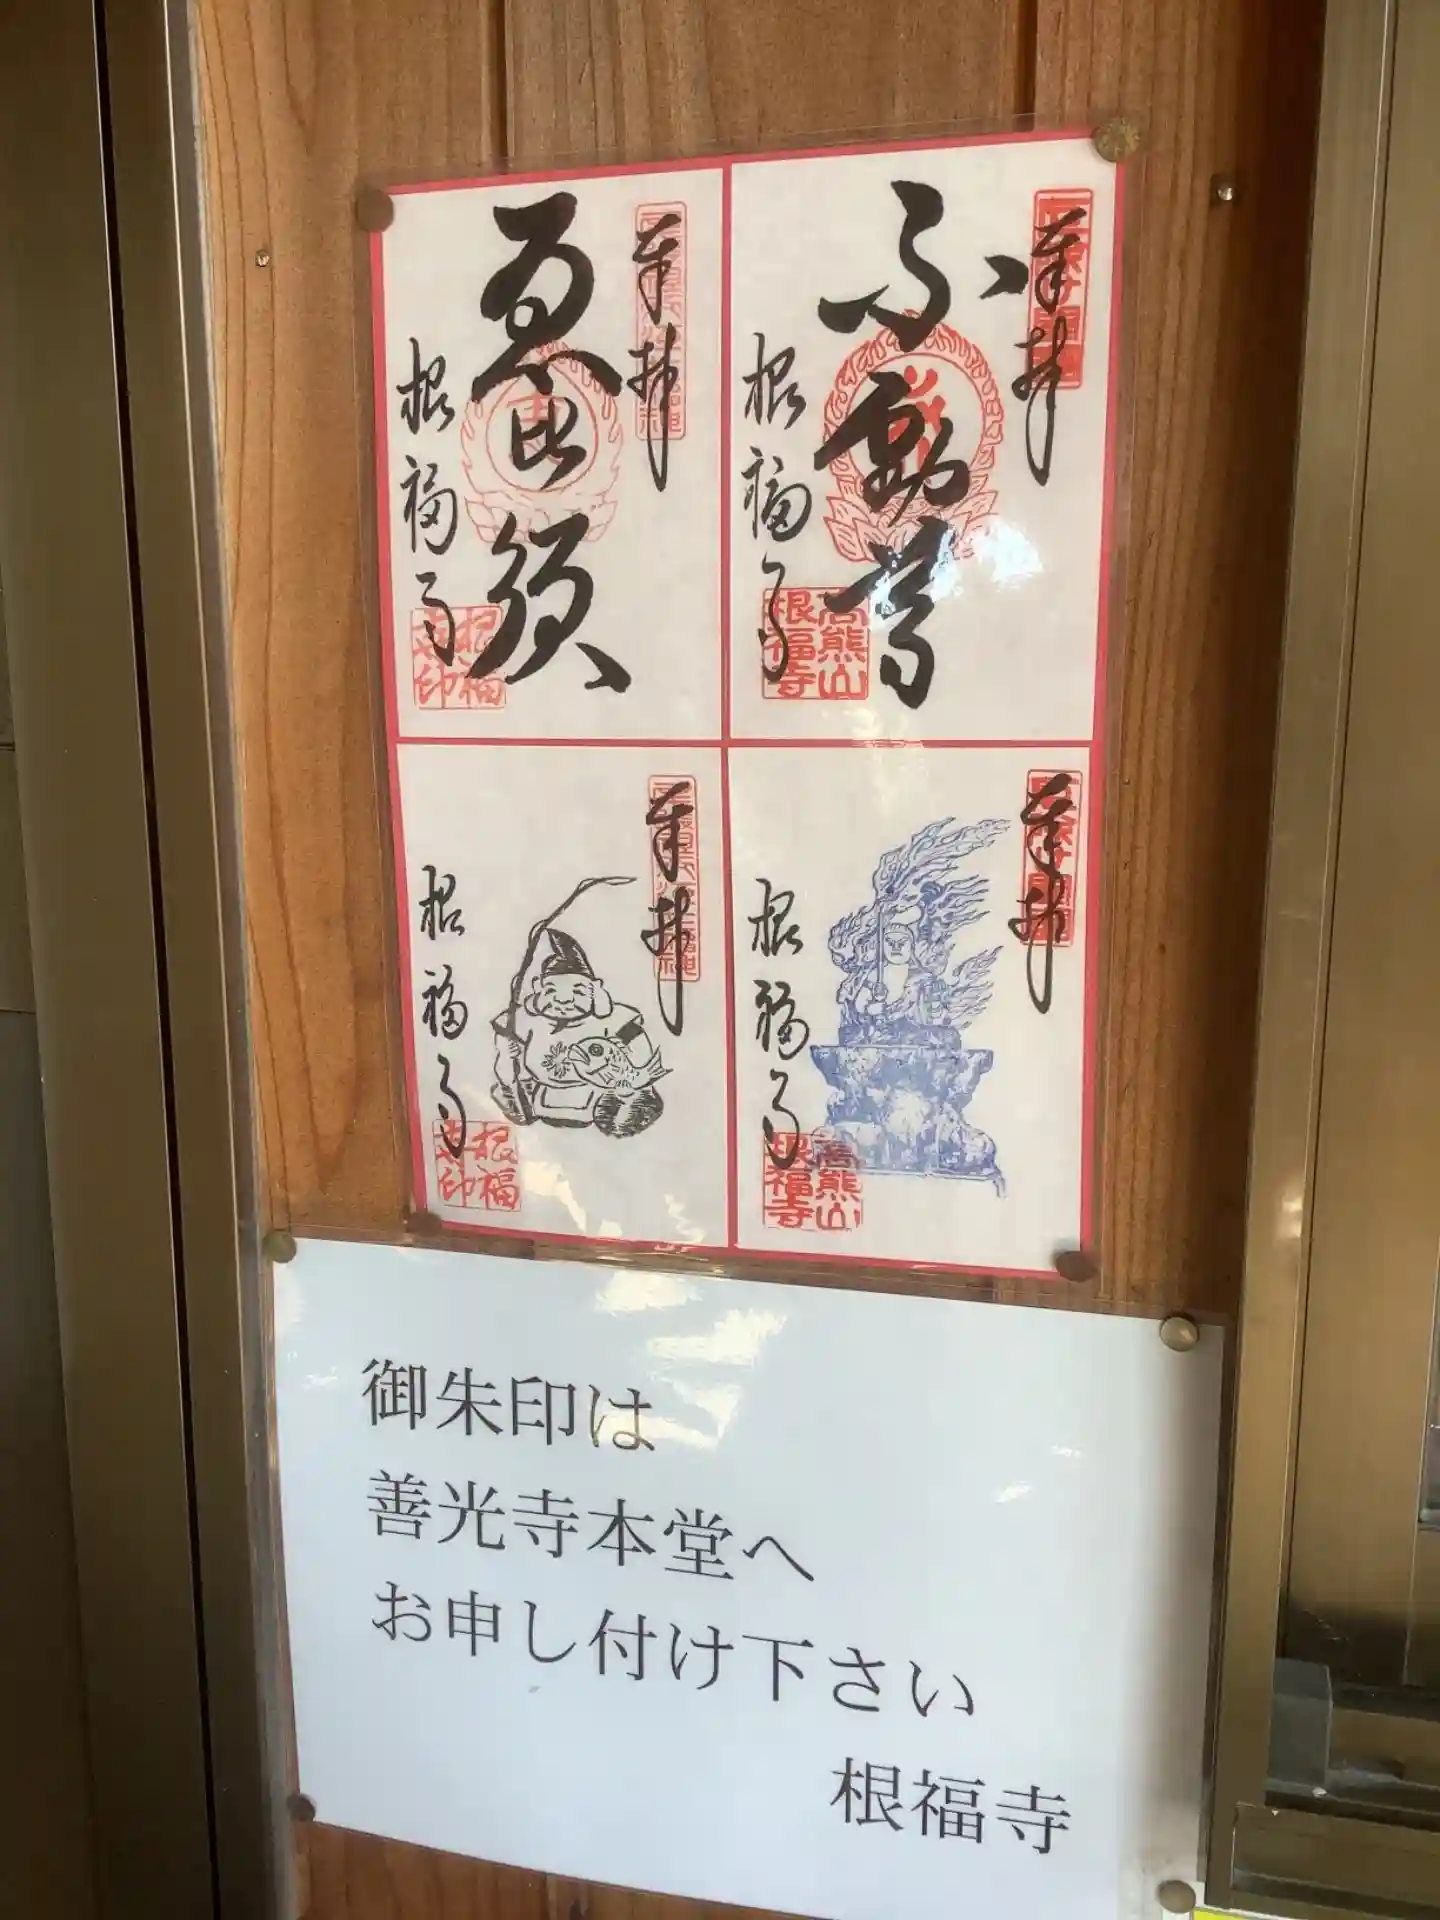 奉拝
不動尊
根福寺
高熊山
根福寺
奉拝
恵比須
根福寺
根福
寺印
奉拝
根福寺
高熊山
根福寺
奉拝
根福寺
根福
寺印
御朱印は
善光寺本堂へ
お申し付け下さい
根福寺